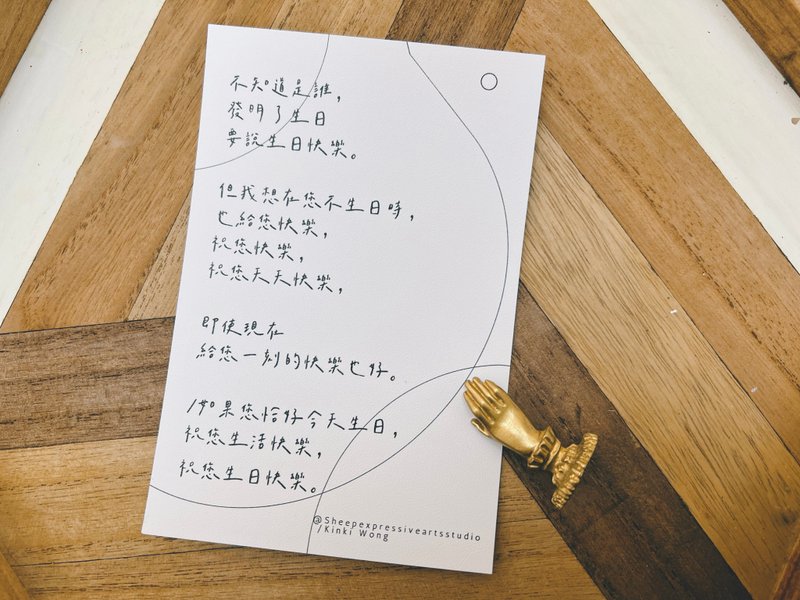 不知道是誰，
發明了生日
要說生日快樂。
但我想在您不生日時，
也給您快樂，
祝您快樂，
祝您天天快樂，
即使現在
給您一刻的快樂也好。
如果您恰好今天生日，
祝您生活快樂，
祝您生日快樂。
@Sheepexpressiveartsstudio
/Kinki Wong